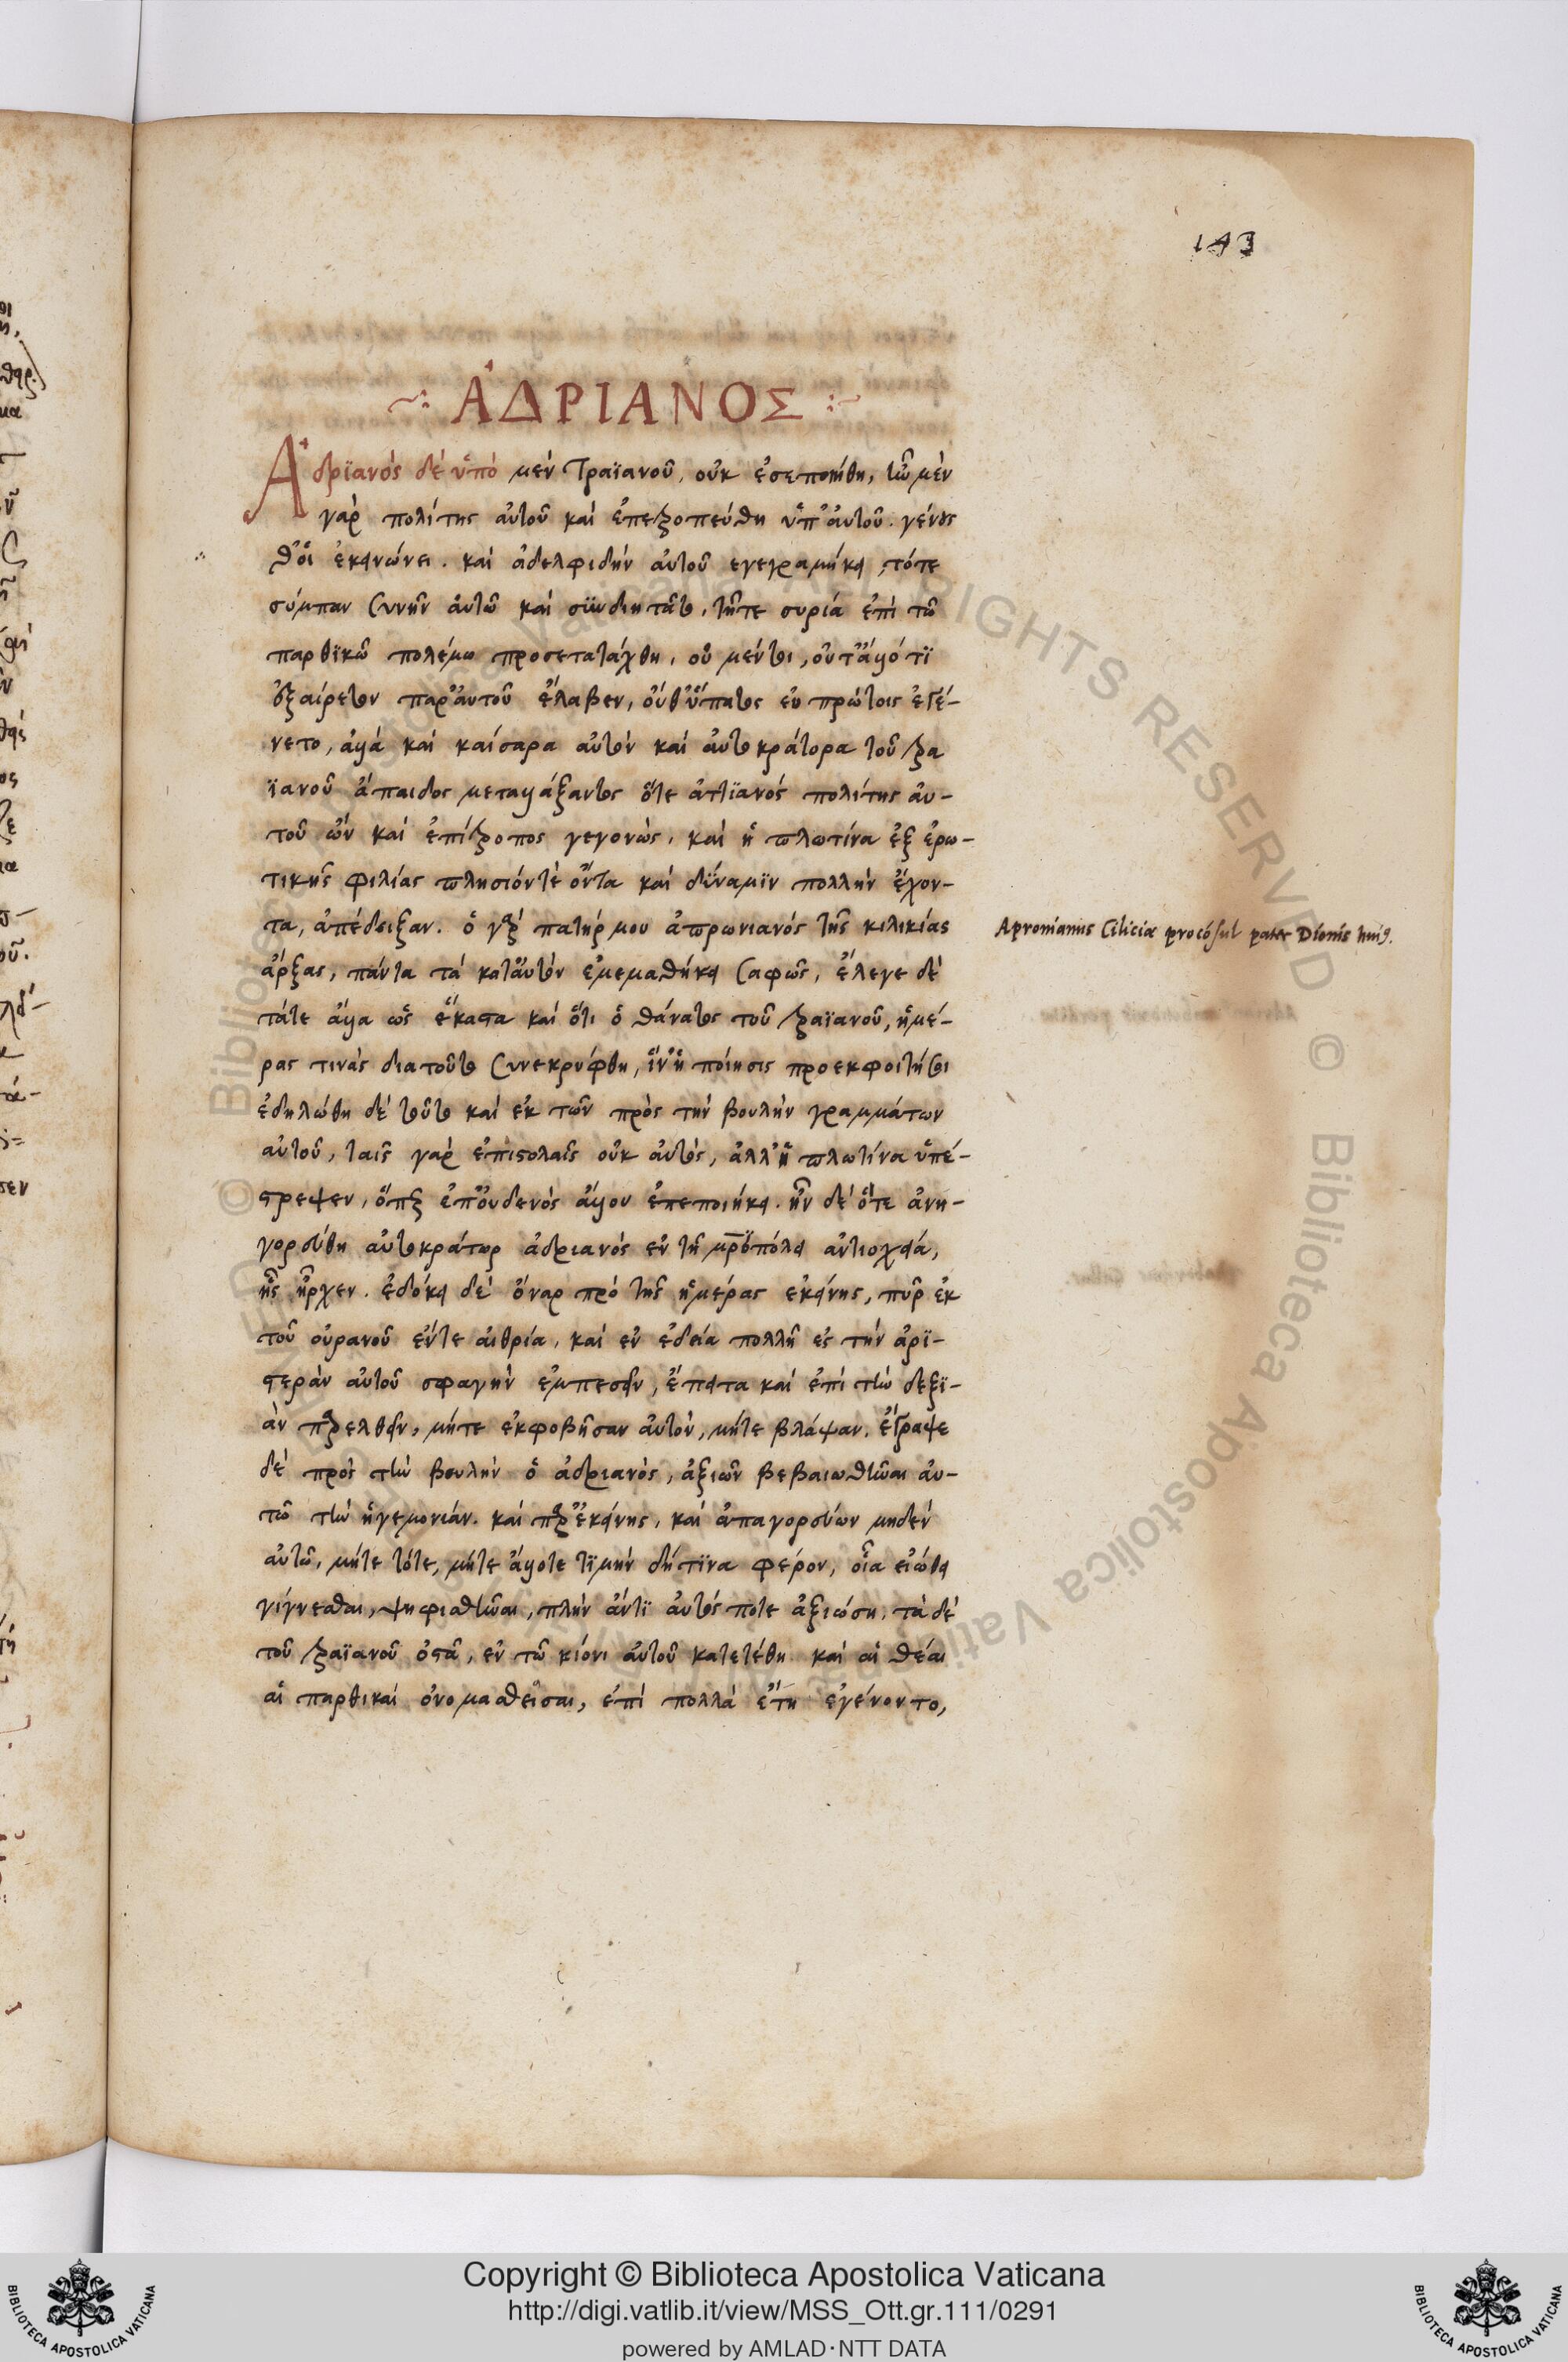 143
ἈΔΡΙΑΝΟΣ
Ἀδρϊανὸς δὲ ὑπὸ μὲν Τραϊανοῦ, οὐκ ἐσεποιήθη, ἦν μὲν
γὰρ πολίτης αὐτοῦ καὶ ἐπετροπεύθη ὑπ' αὐτοῦ. γένους
θ' οἱ ἐκοινώνει. καὶ ἀδελφιδὴν αὐτοῦ εγεγαμήκει, τότε
σύμπαν συνῆν αὐτῶ καὶ σϋνδιητᾶτο, τῆτε συρία ἐπὶ τῶ
παρθϊκῶ πολέμω προσεταϊάχθη, οὐ μέντοι, οὔτ' ἄλλό τϊ
ἐξαίρετον παρ' αὐτοῦ ἔλαβεν, οὔθ' ὕπατος ἐν πρώτοις ἐγέ-
νετο, ἀλλὰ καὶ καίσαρα αὐτὸν καὶ αὐτοκράτορα τοῦ τρα
ϊανοῦ ἄπαιδος μεταλλάξαντος ὅτε ἀττϊανὸς πολίτης αὐ-
τοῦ ὢν καὶ ἐπίτροπος γεγονὼς, καὶ ἡ πλωτίνα ἐξ ἐρω-
τικῆς φιλίας πλησιόντὲ ὄντα καὶ δύναμϊν πολλὴν ἔχον-
τα, ἀπέδειξαν. ὁ γὰρ πατήρ μου ἀπρωνιανὸς τῆς κιλικίας
ἄρξας, πάντα τὰ κατ' αὐτὸν ἐμεμαθήκει σαφῶς, ἔλεγε δὲ
τάτε ἄλλα ὡς ἕκαστα καὶ ὅτι ὁ θάνατος τοῦ τραϊανοῦ, ἡμέ-
ρας τινὰς διατοῦτο συνεκρύφθη, ἵν' ἡ ποίησις προεκφοιτήσοι
ἐδηλώθη δὲ τοῦτο καὶ ἐκ τῶν πρὸς τὴν βουλὴν γραμμάτων
αὐτοῦ, ταῖς γὰρ ἐπιστολαῖς οὐκ αὐτὸς, ἀλλ' ἡ πλωτίνα ὑπέ-
γρεψεν, ὅπερ ἐπ' οὐδενὸς ἄλλου ἐπεποιήκει. ἦν δὲ ὅτε ἀνη-
γορεύθη αὐτοκράτωρ ἀδριανὸς ἐν τῆ μρ̅οπόλει ἀντιοχεία,
ἧς ἦρχεν. ἐδόκει δὲ ὄναρ πρὸ τῆς ἡμέρας ἐκείνης, πῦρ ἐκ
τοῦ οὐρανοῦ ἔντε αἰθρία, καὶ ἐν ἐδεία πολλῆ ἐς τὴν ἀρϊ-
στερὰν αὐτοῦ σφαγὴν ἐμπεσεῖν, ἔπειτα καὶ ἐπὶ τὴν δεξϊ-
ὰν παρελθεῖν, μήτε ἐκφοβῆσαν αὐτὸν, μήτε βλάψαν. ἔγραψε
δὲ πρὸς τὴν βουλὴν ὁ ἀδριανὸς, ἀξιῶν βεβαιωθῆναι αὐ-
τῶ τὴν ἡγεμονιάν. καὶ παρ' ἐκείνης, καὶ ἀπαγορεύων μηδὲν
αὐτῶ, μήτε τότε, μήτε ἄλλοτε τϊμὴν δήτϊνα φέρον, οἷα εἰώθει
γίγνεσθαι, ψηφισθῆναι, πλὴν ἄντϊ αὐτός ποτε ἀξιώση, τὰ δὲ
τοῦ τραϊανοῦ ὀστᾶ, ἐν τῶ κίονι αὐτοῦ κατετέθη καὶ αἱ θέαι
αἱ παρθικαὶ ὀνομασθεῖσαι, ἐπὶ πολλὰ ἔτη ἐγένοντο,
Apronianus Ciliciæ procósul pater Dionis huiꝰ.
Copyright © Biblioteca Apostolica Vaticana
http://digi.vatlib.it/view/MSS_Ott.gr.111/0291
powered by AMLAD·NTT DATA
BIBLIOTECA APOSTOLICA VATICANA
BIBLIOTECA APOSTOLICA VATICANA